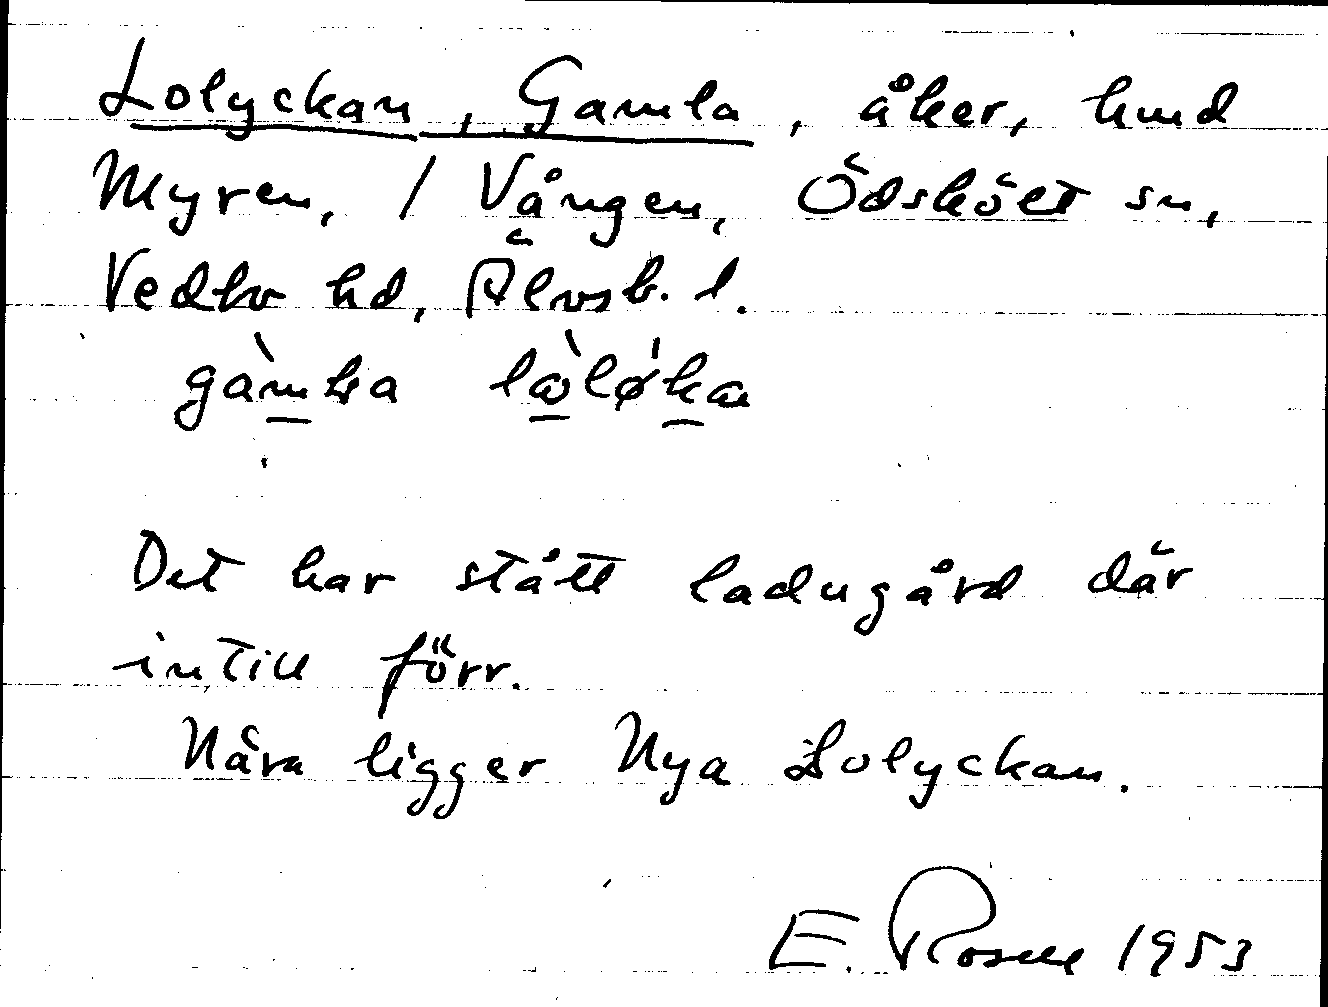 Lolyckan, Gamla, åker, hmd
Myren, 1 Vången, Ödskölt sn,
Vedbo hd, Älvsb. l.
Det har stått ladugård där
intill förr.
Nära ligger Nya Lolyckan.
E. Rosell 1953